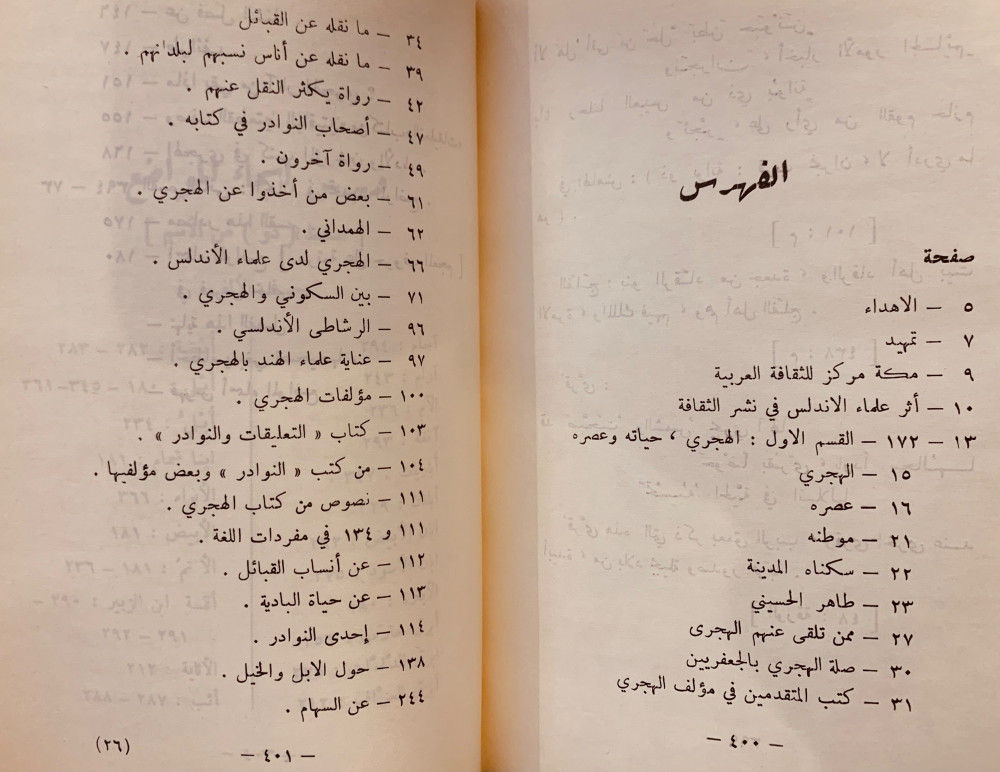 الفهرس
صفحة
٥ – الاهداء
٧ – تمهيد
٩ – مكة مركز للثقافة العربية
١٠ – أثر علماء الاندلس في نشر الثقافة
١٣ – ١٧٢ – القسم الاول : الهجري ، حياته وعصره
١٥ – الهجري
١٦ – عصره
٢١ – موطنه
٢٢ – سكناه المدينة
٢٣ – طاهر الحسيني
٢٧ – ممن تلقى عنهم الهجرى
٣٠ – صلة الهجري بالجعفريين
٣١ – كتب المتقدمين في مؤلف الهجري
– ٤٠٠ –
٣٤ – ما نقله عن القبائل
٣٩ – ما نقله عن أناس نسبهم لبلدانهم .
٤٢ – رواة يكثر النقل عنهم .
٤٧ – أصحاب النوادر في كتابه .
٤٩ – رواة آخرون .
٦١ – بعض من أخذوا عن الهجري .
٦٢ – الهمداني .
٦٦ – الهجري لدى علماء الأندلس .
٧١ – بين السكوني والهجري .
٩٦ – الرشاطى الأندلسي .
٩٧ – عناية علماء الهند بالهجري .
١٠٠ – مؤلفات الهجري .
١٠٣ – كتاب « التعليقات والنوادر » .
١٠٤ – من كتب « النوادر » وبعض مؤلفيها .
١١١ – نصوص من كتاب الهجري .
١١١ و ١٣٤ في مفردات اللغة .
١١٢ – عن أنساب القبائل .
١١٣ – عن حياة البادية .
١١٤ – إحدى النوادر .
١٣٨ – حول الابل والخيل .
٢٤٤ – عن السهام .
– ٤٠١ –
(٢٦)